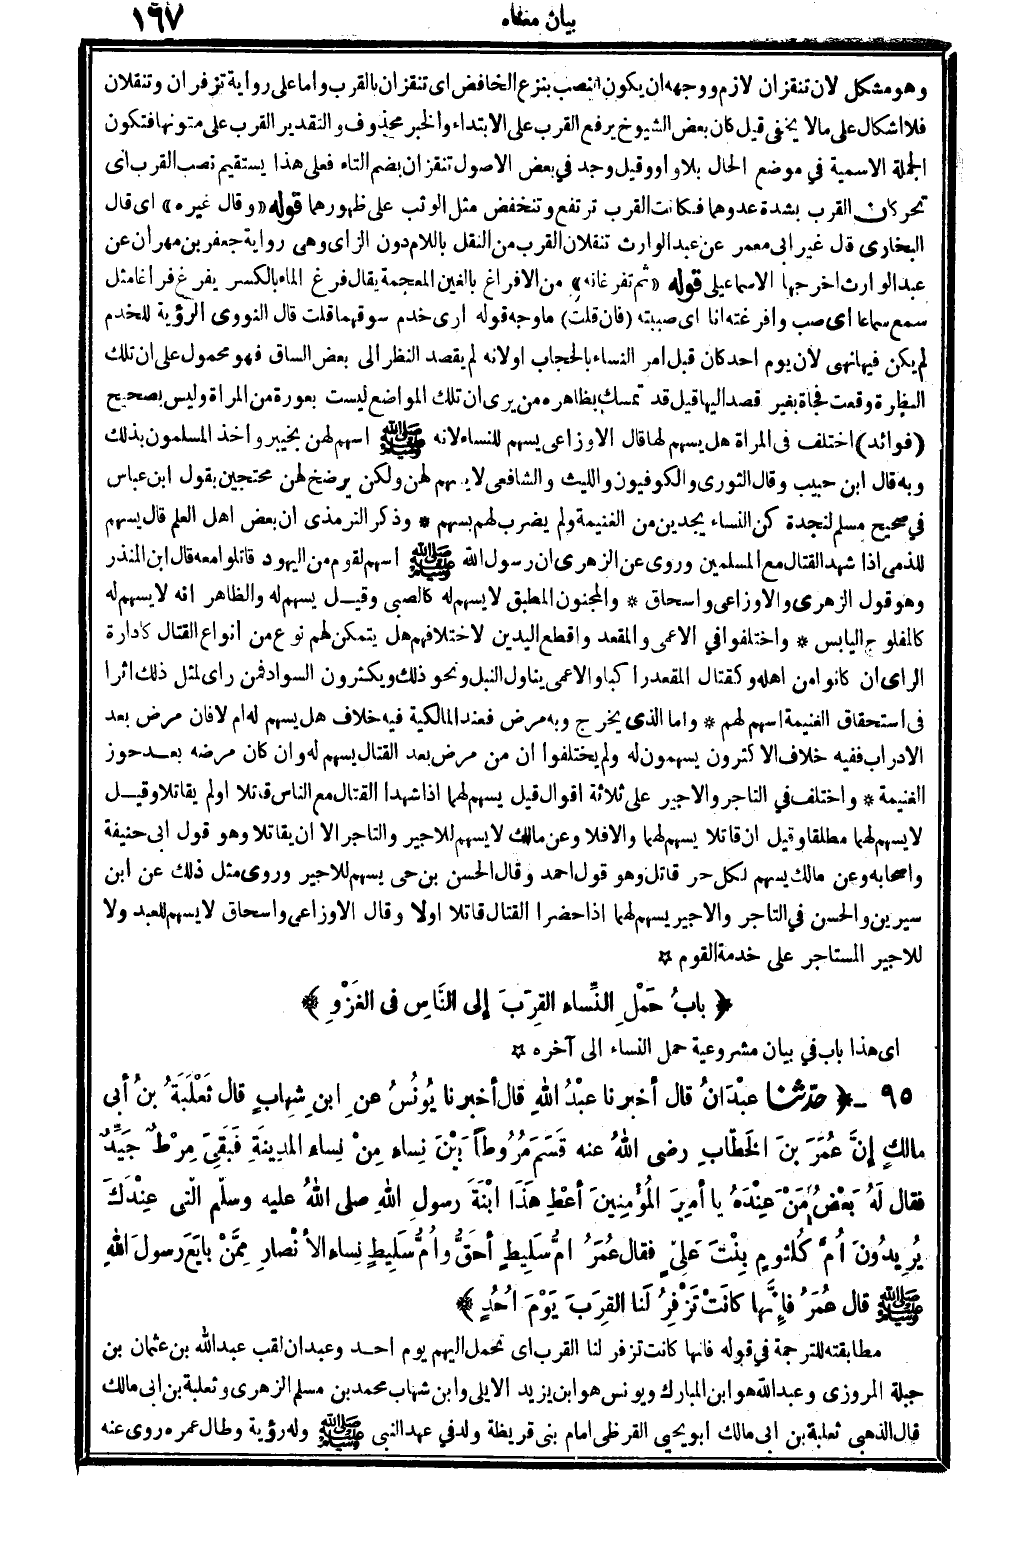 بيان معناه ١٦٧
وهو مشكل لان تنقزان لازم ووجهه ان يكون النصب بنزع الخافض اى تنقزان بالقرب واما على رواية تزفران وتنقلان
فلا اشكال على مالا يخفى قيل كان بعض الشيوخ يرفع القرب على الابتداء والخبر محذوف والتقدير القرب على متونها فتكون
الجملة الاسمية في موضع الحال بلا واو وقيل وجد في بعض الاصول تنقزان بضم التاء فعلى هذا يستقيم نصب القرب اى
تحركان القرب بشدة عدوهما فكانت القرب ترتفع وتنخفض مثل الوثب على ظهورهما قوله «وقال غيره» اى قال
البخارى قال غير ابى معمر عن عبد الوارث تنقلان القرب من النقل باللام دون الزاى وهى رواية جعفر بن مهران عن
عبد الوارث اخرجها الاسماعيلى قوله «ثم تفرغانه» من الافراغ بالغين المعجمة يقال فرغ الماء بالكسر يفرغ فراغا مثل
سمع سماعا اى صب وافرغته انا اى صببته (فان قلت) ما وجه قوله ارى خدم سوقهما قلت قال النووى الرؤية للخدم
لم يكن فيها نهى لان يوم احد كان قبل امر النساء بالحجاب او لانه لم يقصد النظر الى بعض الساق فهو محمول على ان تلك
النظرة وقعت فجاة بغير قصد اليها قيل قد تمسك بظاهره من يرى ان تلك المواضع ليست بعورة من المراة وليس بصحيح
(فوائد) اختلف فى المراة هل يسهم لها قال الاوزاعى يسهم للنساء لانه ﷺ اسهم لهن بخيبر واخذ المسلمون بذلك
وبه قال ابن حبيب وقال الثورى والكوفيون والليث والشافعى لا يسهم لهن ولكن يرضخ لهن محتجين بقول ابن عباس
في صحيح مسلم لنجدة كن النساء يجدين من الغنيمة ولم يضرب لهم بسهم * وذكر الترمذى ان بعض اهل العلم قال يسهم
للذمى اذا شهد القتال مع المسلمين وروى عن الزهرى ان رسول الله ﷺ اسهم لقوم من اليهود قاتلوا معه قال ابن المنذر
وهو قول الزهرى والاوزاعى واسحاق * والمجنون المطبق لا يسهم له كالصبى وقيل يسهم له والظاهر انه لا يسهم له
كالمفلوج اليابس * واختلفوا في الاعمى والمقعد واقطع اليدين لاختلافهم هل يتمكن لهم نوع من انواع القتال كادارة
الراى ان كانوا من اهله وكقتال المقعد راكبا والاعمى يناول النبل ونحو ذلك ويكثرون السواد فمن راى لمثل ذلك اثرا
فى استحقاق الغنيمة اسهم لهم * واما الذى يخرج وبه مرض فعند المالكية فيه خلاف هل يسهم له ام لا فان مرض بعد
الادراب ففيه خلاف الاكثرون يسهمون له ولم يختلفوا ان من مرض بعد القتال يسهم له وان كان مرضه بعد حوز
الغنيمة * واختلف في التاجر والاجير على ثلاثة اقوال قيل يسهم لهما اذا شهدا القتال مع الناس قاتلا اولم يقاتلا وقيل
لا يسهم لهما مطلقا وقيل ان قاتلا يسهم لهما والافلا وعن مالك لا يسهم للاجير والتاجر الا ان يقاتلا وهو قول ابى حنيفة
واصحابه وعن مالك يسهم لكل حر قاتل وهو قول احمد وقال الحسن بن حى يسهم للاجير وروى مثل ذلك عن ابن
سيرين والحسن في التاجر والاجير يسهم لهما اذا حضرا القتال قاتلا اولا وقال الاوزاعى واسحاق لا يسهم للعبد ولا
للاجير المستاجر على خدمة القوم ☆
﴿ بابُ حَمْلِ النِّساءِ القِرَبَ إلى النَّاسِ فى الغَزْوِ ﴾
اى هذا باب في بيان مشروعية حمل النساء الى آخره ☆
٩٥ ـ ﴿ حدّثنا عبْدَانُ قال أخبرنا عبْدُ اللهِ قال أخبرنا يُونُسُ عن ابنِ شِهابٍ قال ثَعْلَبَةُ بنُ أبى
مالكٍ إنَّ عُمَرَ بنَ الخَطّابِ رضى اللهُ عنه قَسَمَ مُرُوطاً بَيْنَ نِساءٍ مِنْ نِساءِ المَدِينَةِ فَبَقِىَ مِرْطٌ جَيِّدٌ
فقال لَهُ بَعْضُ مَنْ عِنْدَهُ يا أمِيرَ المُؤْمِنِينَ أعْطِ هَذَا ابْنَةَ رسولِ اللهِ صلى اللهُ عليه وسلّم الّتى عِنْدَكَ
يُرِيدُونَ أُمَّ كُلْثومٍ بِنْتَ عَلِىٍّ فقال عُمَرُ أمُّ سَلِيطٍ أحَقُّ وأُمُّ سَلِيطٍ نِساءِ الأنْصارِ مِمَّنْ بايَعَ رسولَ اللهِ
ﷺ قال عُمَرُ فإنَّها كانَتْ تَزْفِرُ لَنا القِرَبَ يَوْمَ أُحُدٍ ﴾
مطابقته للترجمة في قوله فانها كانت تزفر لنا القرب اى تحمل اليهم يوم احد وعبدان لقب عبد الله بن عثمان بن
جبلة المروزى وعبد الله هو ابن المبارك ويونس هو ابن يزيد الايلى وابن شهاب محمد بن مسلم الزهرى وثعلبة بن ابى مالك
قال الذهبى ثعلبة بن ابى مالك ابو يحيى القرظى امام بنى قريظة ولد في عهد النبى ﷺ وله رؤية وطال عمره روى عنه